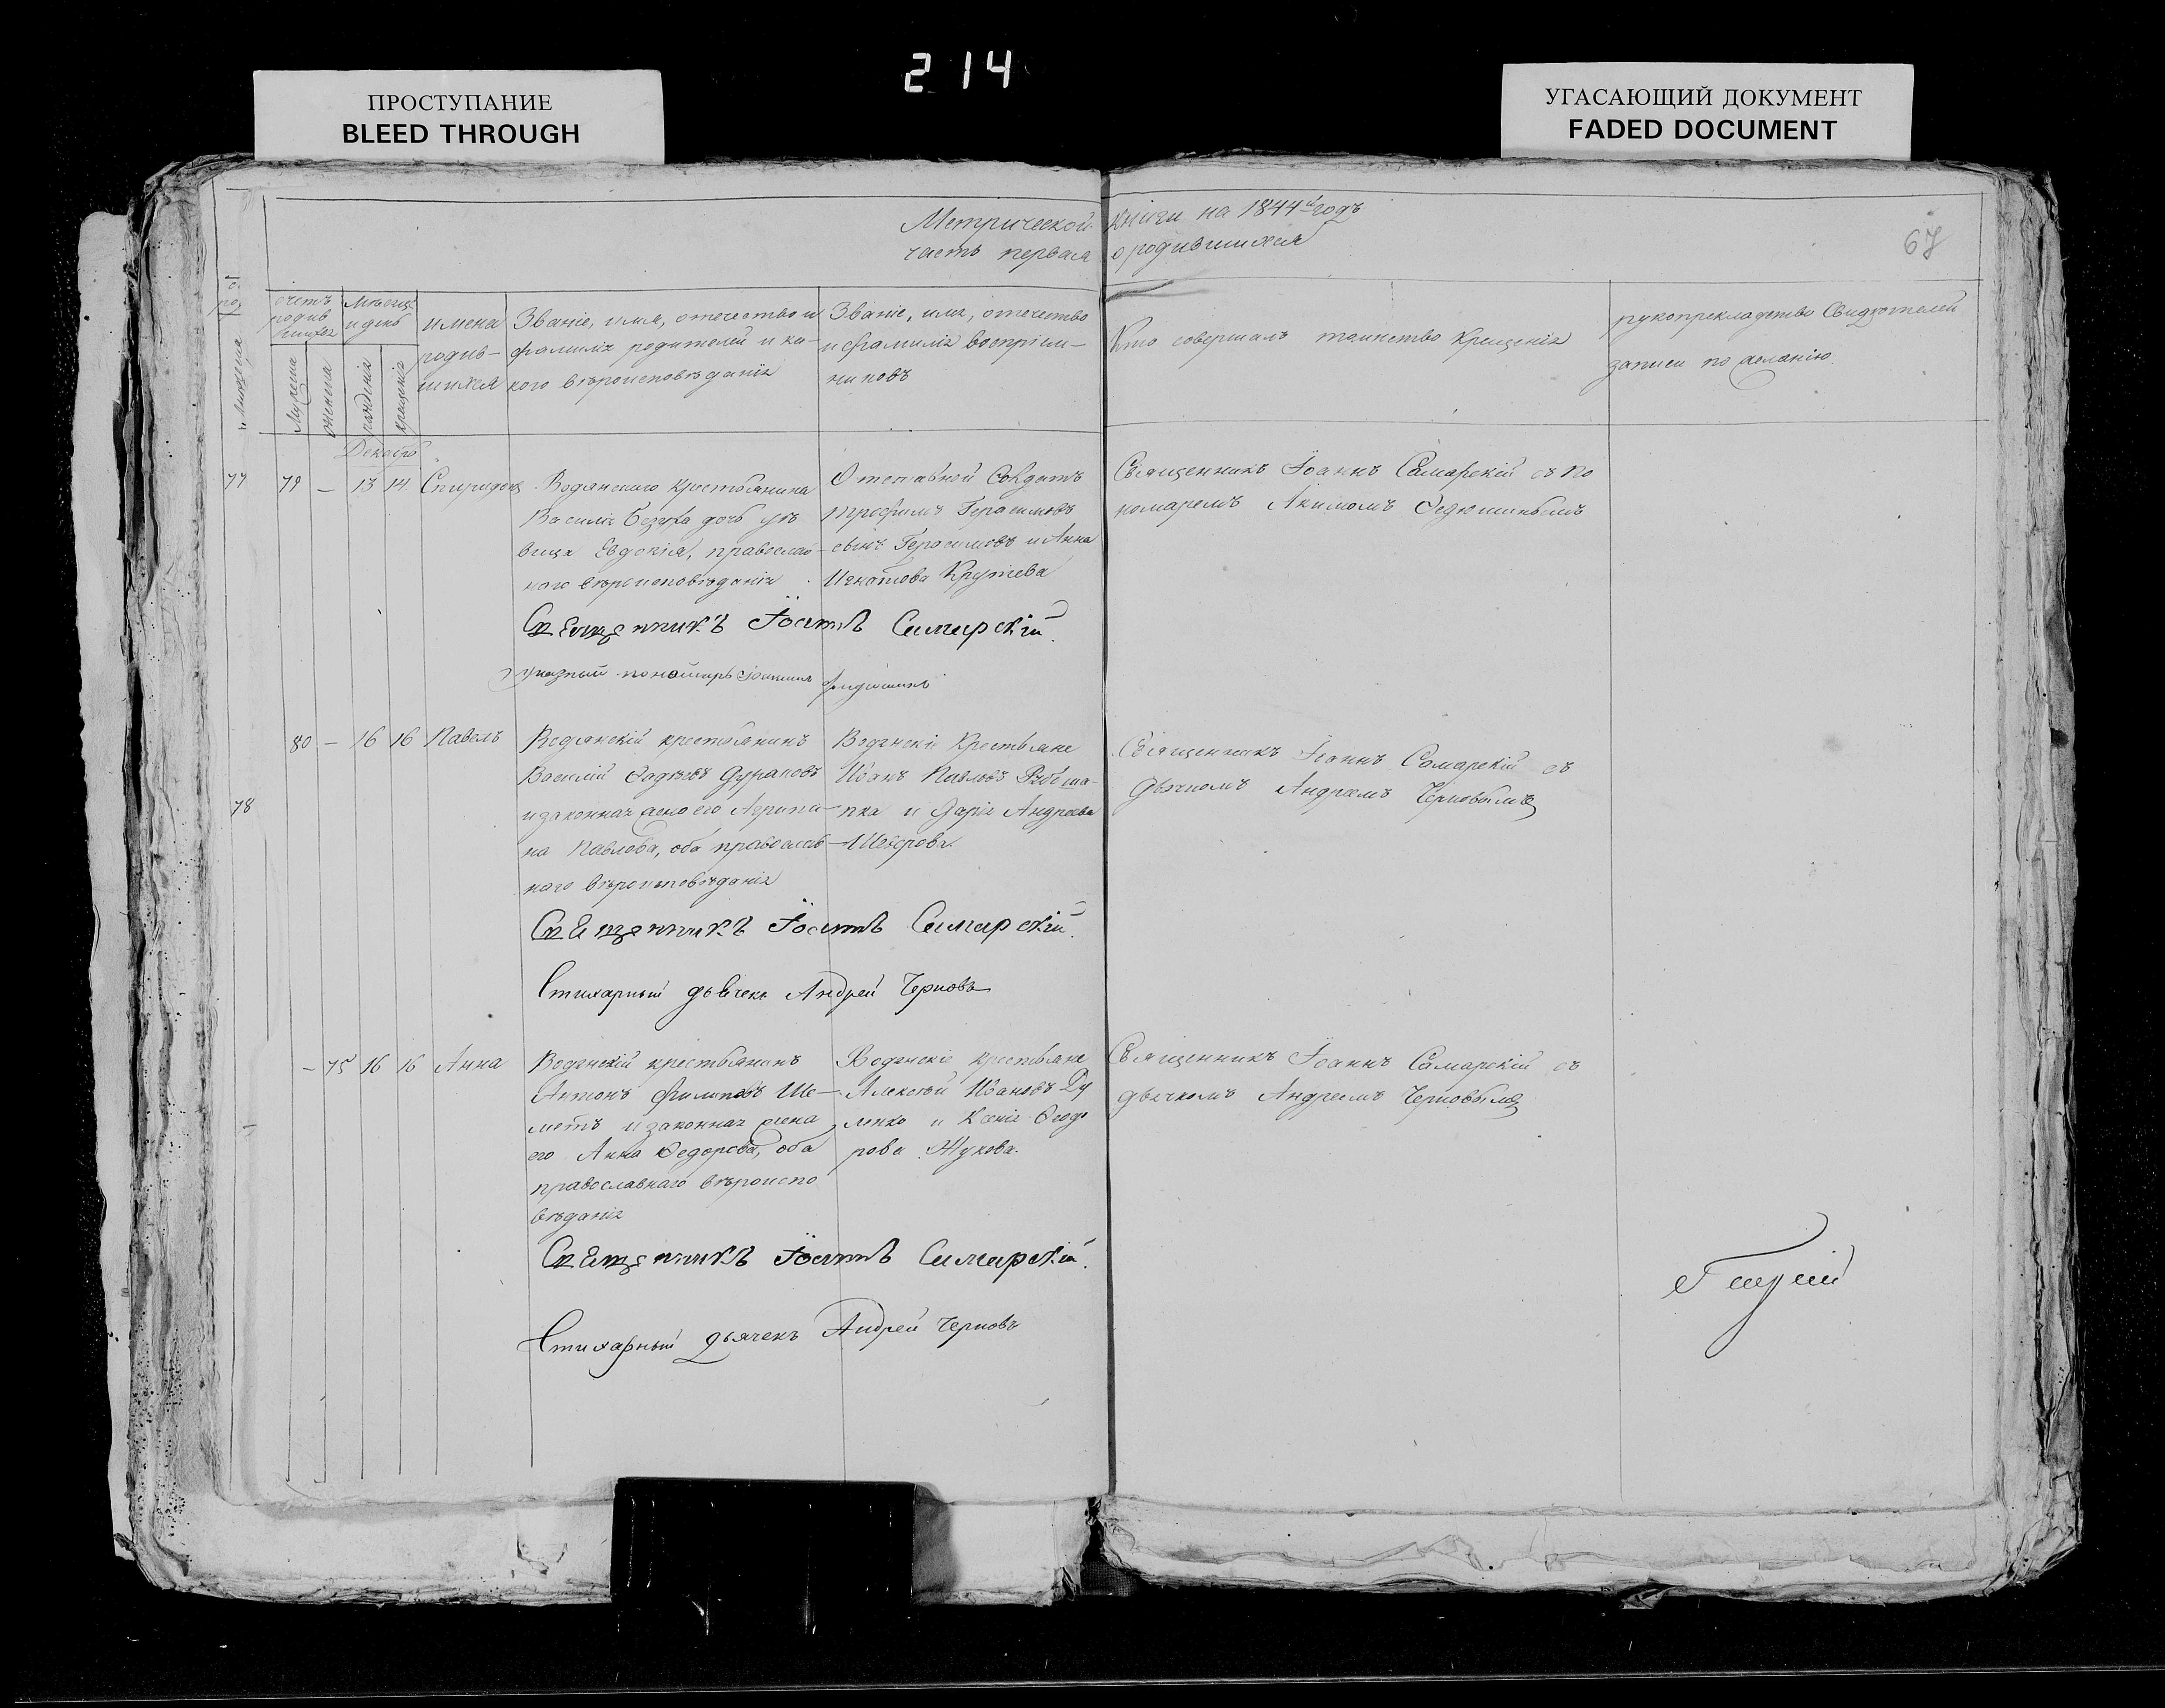 214
ПРОСТУПАНИЕ
BLEED THROUGH
УГАСАЮЩИЙ ДОКУМЕНТ
FADED DOCUMENT
Метрической книги на 1844й годъ
часть первая о родившихся
67
счетъ родившихся
Мѣсяцъ и день
имена родившихся
Званіе, имя, отечество и
фамилія родителей и ка-
кого вѣроисповѣданія
Званіе, имя, отечество
и фамилія воспріем-
никовъ
Кто совершалъ таинство крещенія
рукоприкладство свидѣтелей
записи по желанію
Мужеска
женска
рожденія
крещенія
Декабр
77
79 — 13 14 Спиридонъ
Водянскаго крестьянина
Василія дочь дѣ
вица Евдокія, православ
наго вѣроисповѣданія
Отставной Солдатъ
Трофимъ Герасимовъ
сынъ Герасимовъ и Анна
Игнатова
Священникъ Іоаннъ Самарскій съ по
номаремъ Акимомъ Федюшинымъ
Священникъ Іоаннъ Самарскій.
указный пономарь Іоакимъ Федюшинъ
78
80 — 16 16 Павелъ
Водянскій крестьянинъ
Василій Фадѣевъ Дураковъ
и законная жена его Агрипи-
на Павлова, оба православ
наго вѣроисповѣданія
Водянскіе Крестьяне
Иванъ Павловъ
и Дарія Андреева
Священникъ Іоаннъ Самарскій съ
дьячкомъ Андреемъ Черновымъ
Священникъ Іоаннъ Самарскій.
Стихарный дьячекъ Андрей Черновъ
— 75 16 16 Анна
Водянскій крестьянинъ
Антонъ Филиповъ Ше-
метъ и законная жена
его Анна Федорова, оба
православнаго вѣроиспо
вѣданія
Водянскіе крестьяне
Алексѣй Ивановъ Ду
менко и Ксенія Федо
рова Жукова.
Священникъ Іоаннъ Самарскій съ
дьячкомъ Андреемъ Черновымъ
Священникъ Іоаннъ Самарскій.
Стихарный дьячекъ Андрей Черновъ